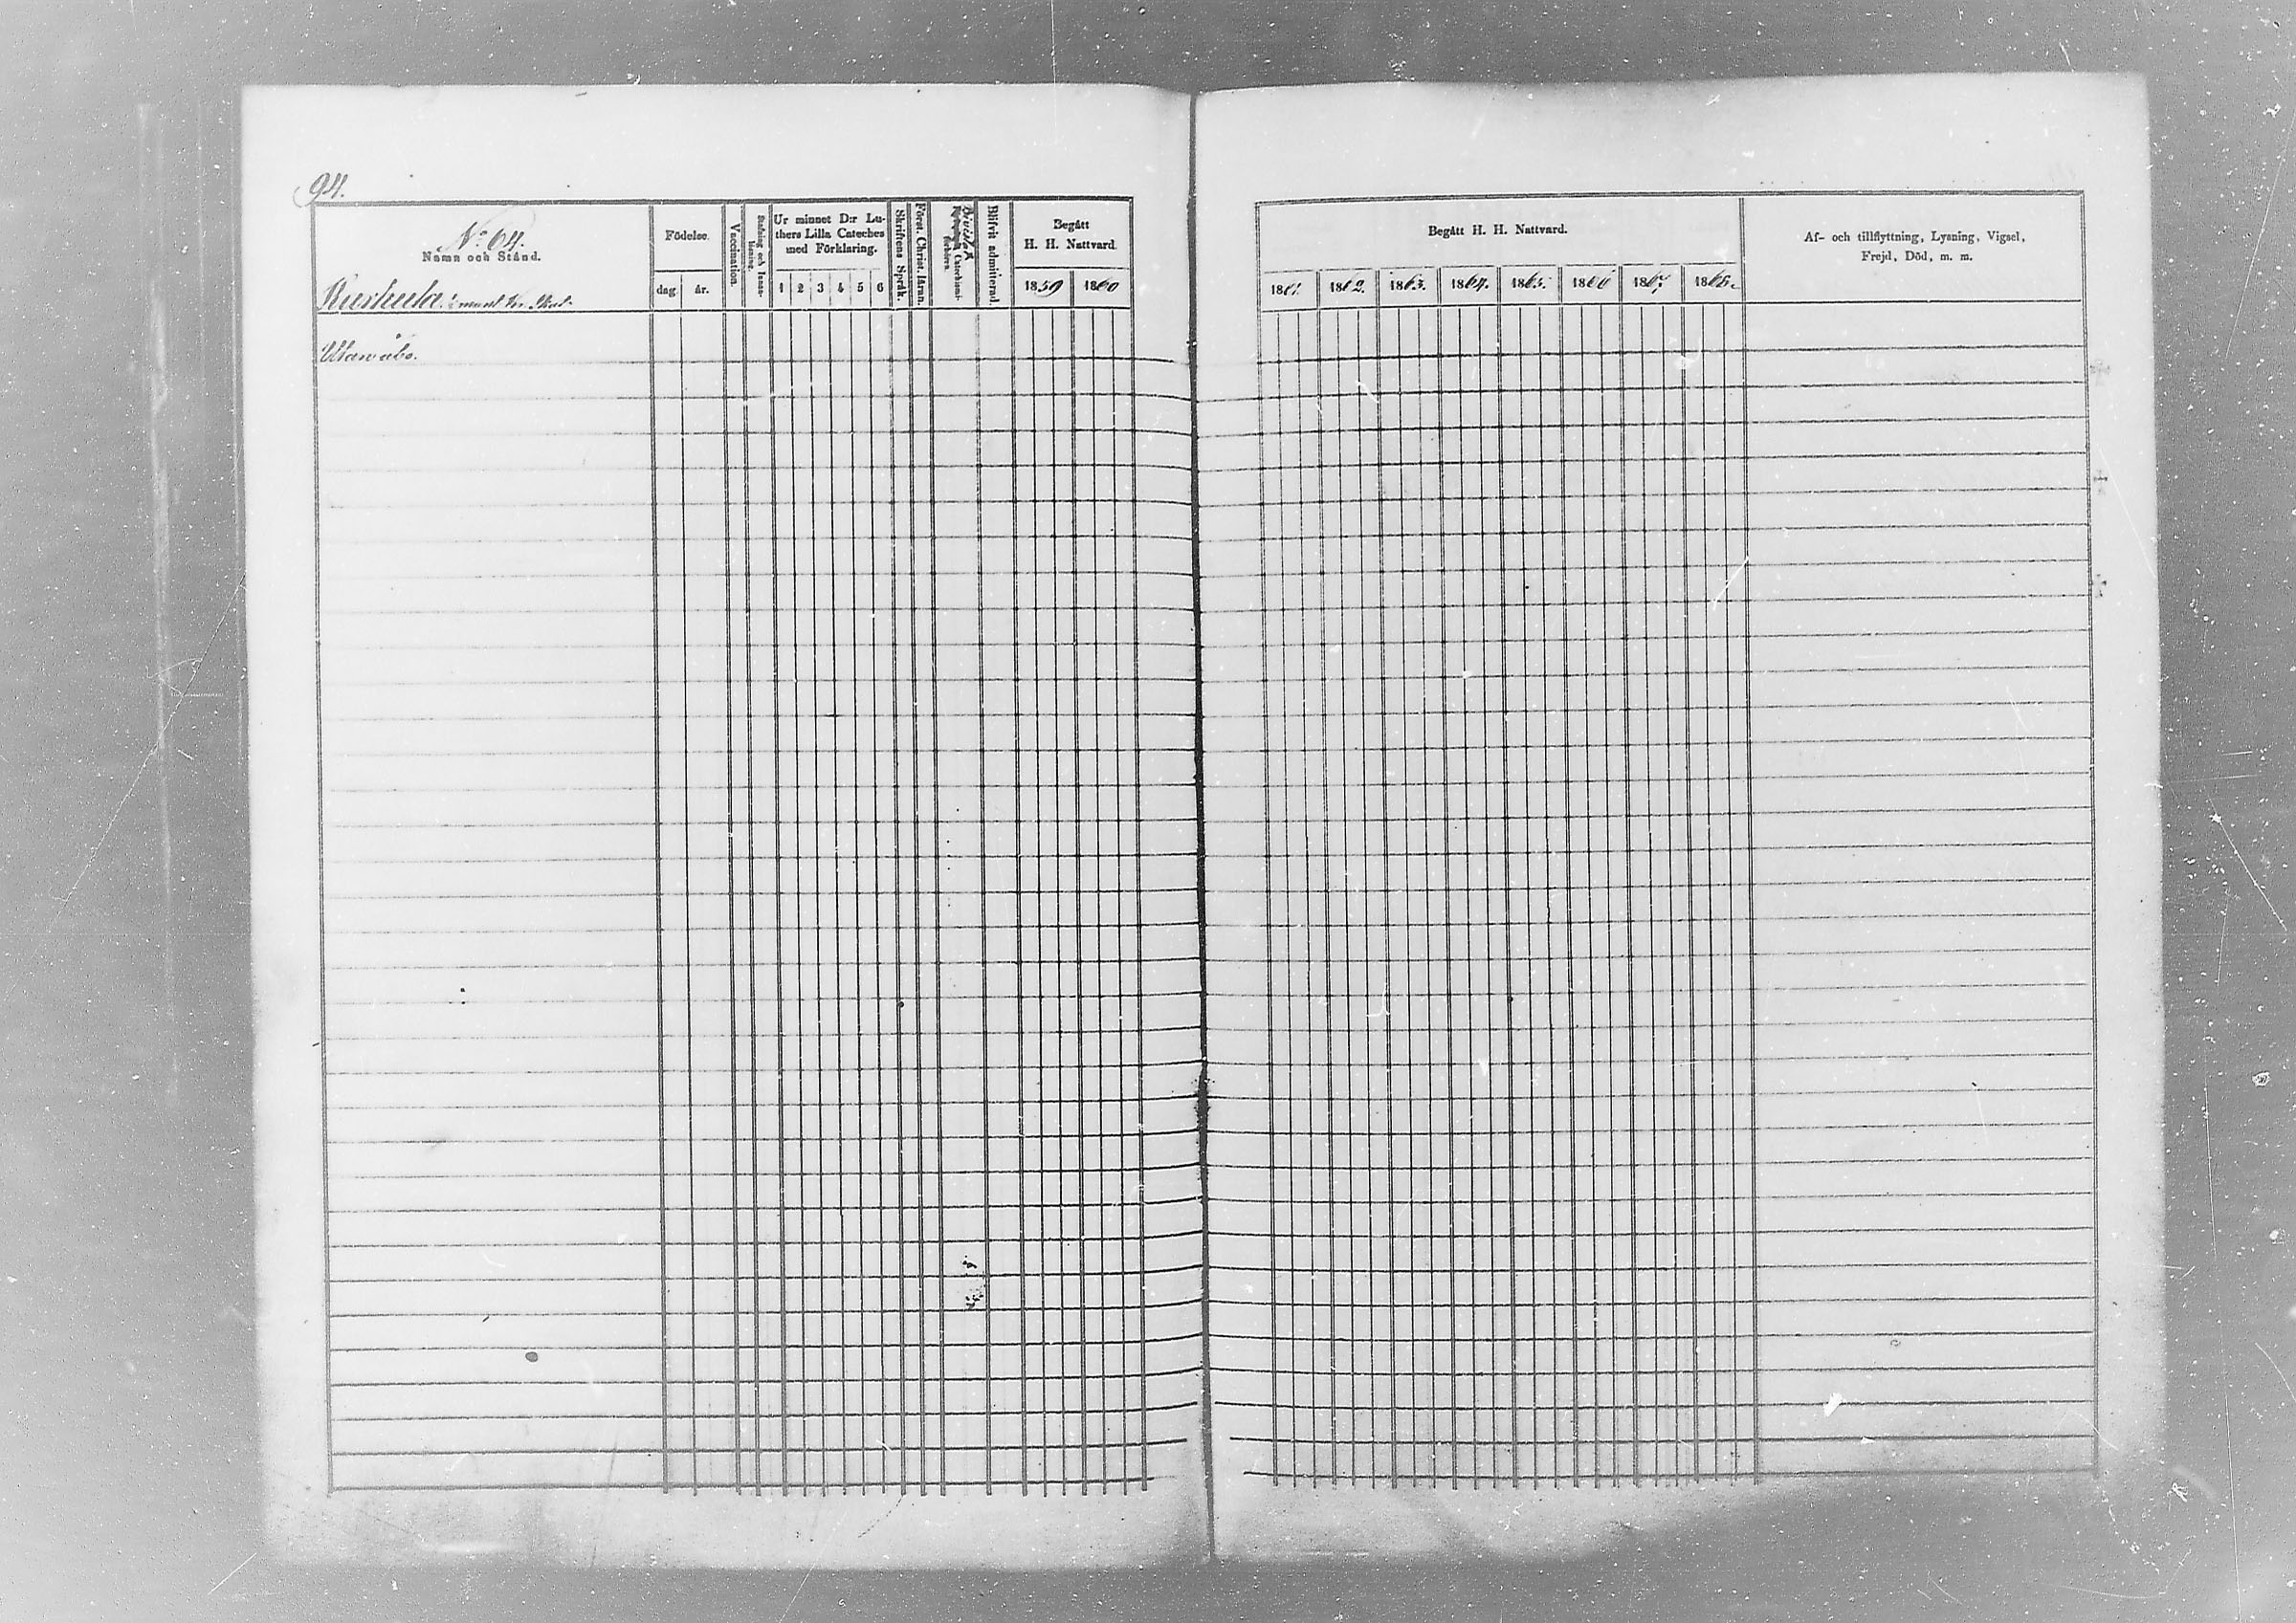 94.
No 64.
Namn och Stånd.
Födelse.
dag
år.
Vaccination.
Stafning och Innanläsning.
Ur minnet D:r Luthers Lilla Cateches med Förklaring.
1 2 3 4 5 6
Skriftens Språk.
Först. Christ. läran.
Bevistat
Catechismi-
förhören.
Blifvit admitterad
Begått
H. H. Nattvard.
1859 1860
mantl Kr. Skat.
Utan åbo.
Begått H. H. Nattvard.
1861. 1862. 1863. 1864. 1865. 1866 1867. 1868.
Af- och tillflyttning, Lysning, Vigsel,
Frejd, Död, m. m.